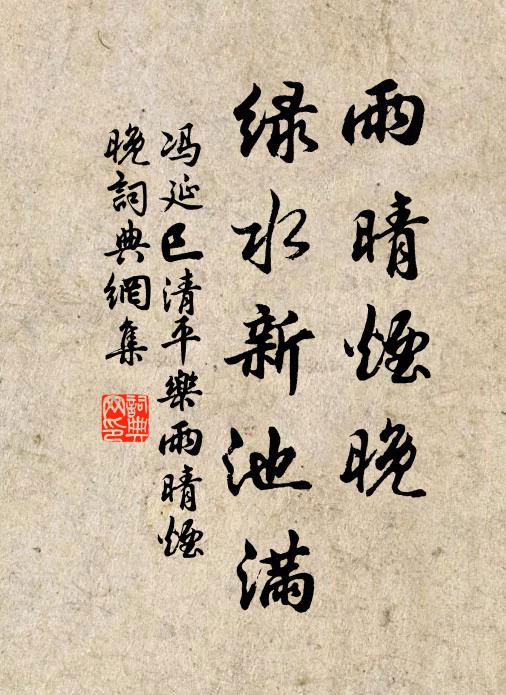 雨晴煙晚
緑水新池滿
冯延巳清平樂雨晴煙
晚詞典網集
詞典网印